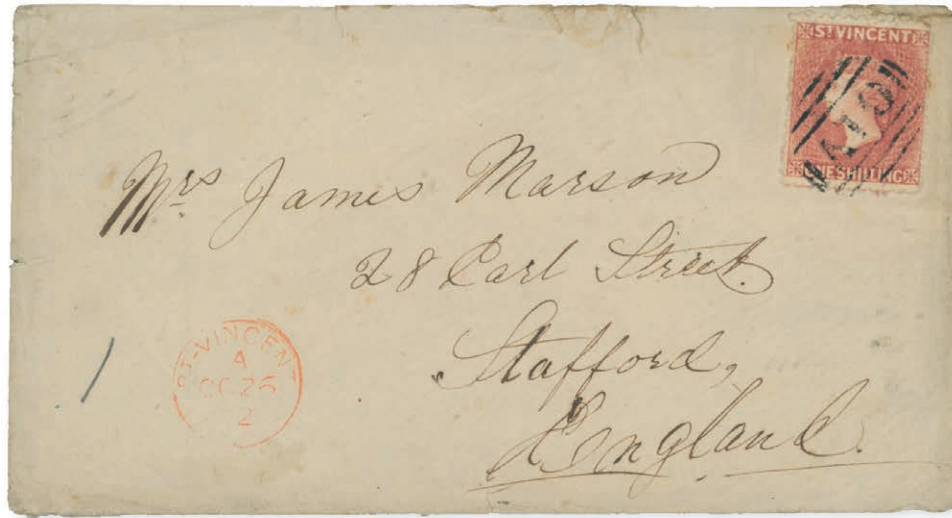 ST VINCENT
A10
ONE SHILLING
Mrs James Marson
28 Earl Street.
Stafford,
England.
ST-VINCENT
A
OC 26
2